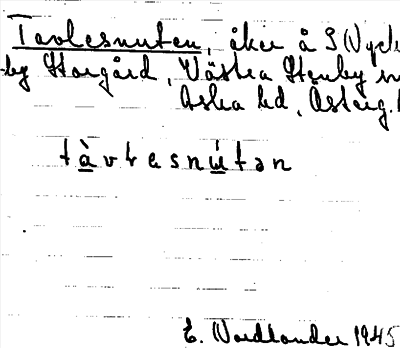 Tavlesnuten, åker å S Nyck
by Storgård, Västra Stenby sn
Aska hd, Österg.
tàvlesnútən
E. Nordlander 1945